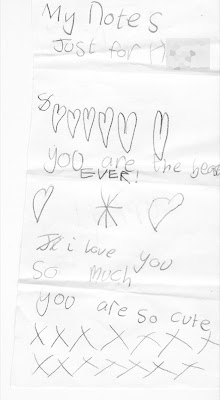 My Notes
Just for
you are the best
EVER!
i love you
So much
you are so cute
X X X X X X X X
X X X X X X X X